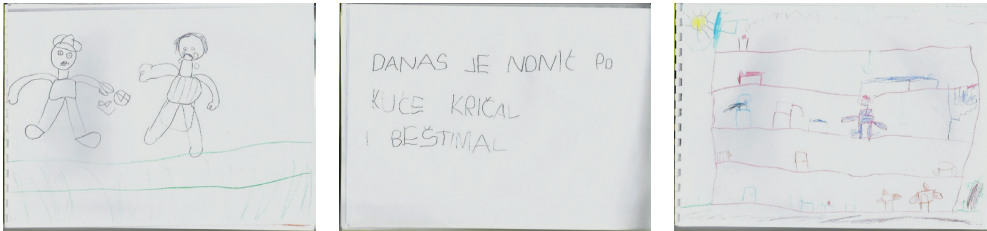 DANAS JE NONIĆ PO
KUĆE KRIČAL
I BEŠTIMAL